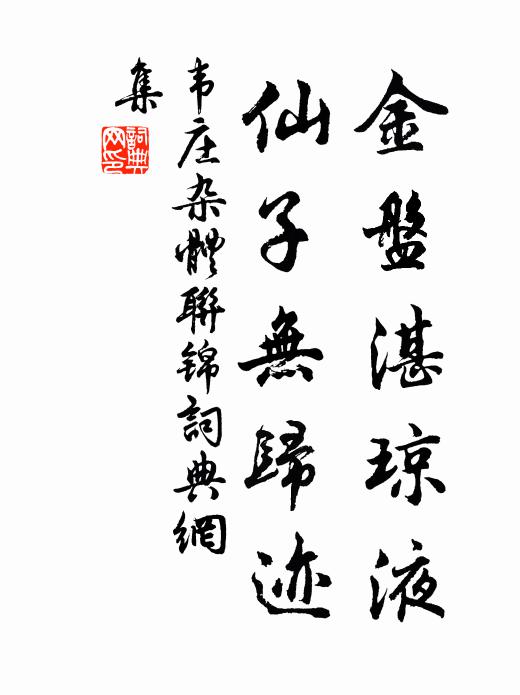 金盤湛琼液
仙子無歸迹
韦庄杂體聯锦詞典網
集
詞典
网印